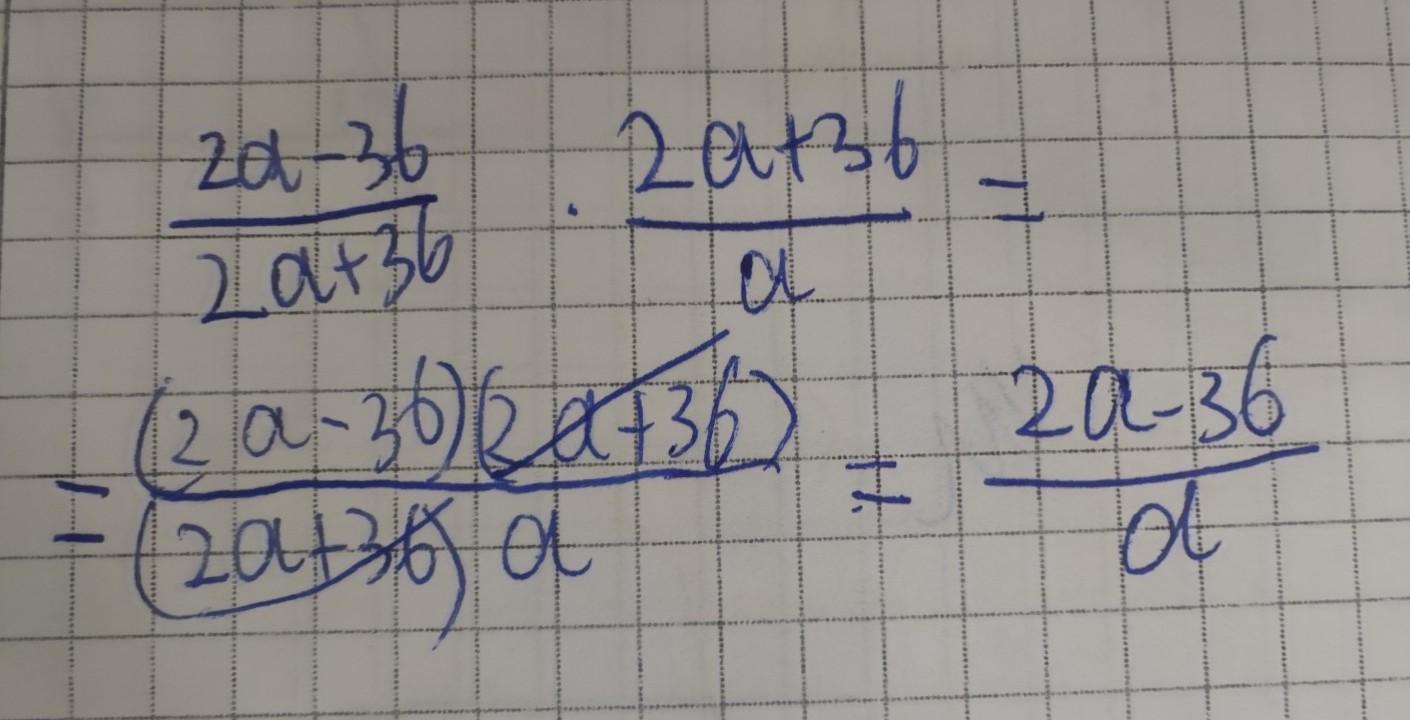 2a-3b / 2a+3b · 2a+3b / a =
= (2a-3b)(2a+3b) / (2a+3b) a = 2a-3b / a